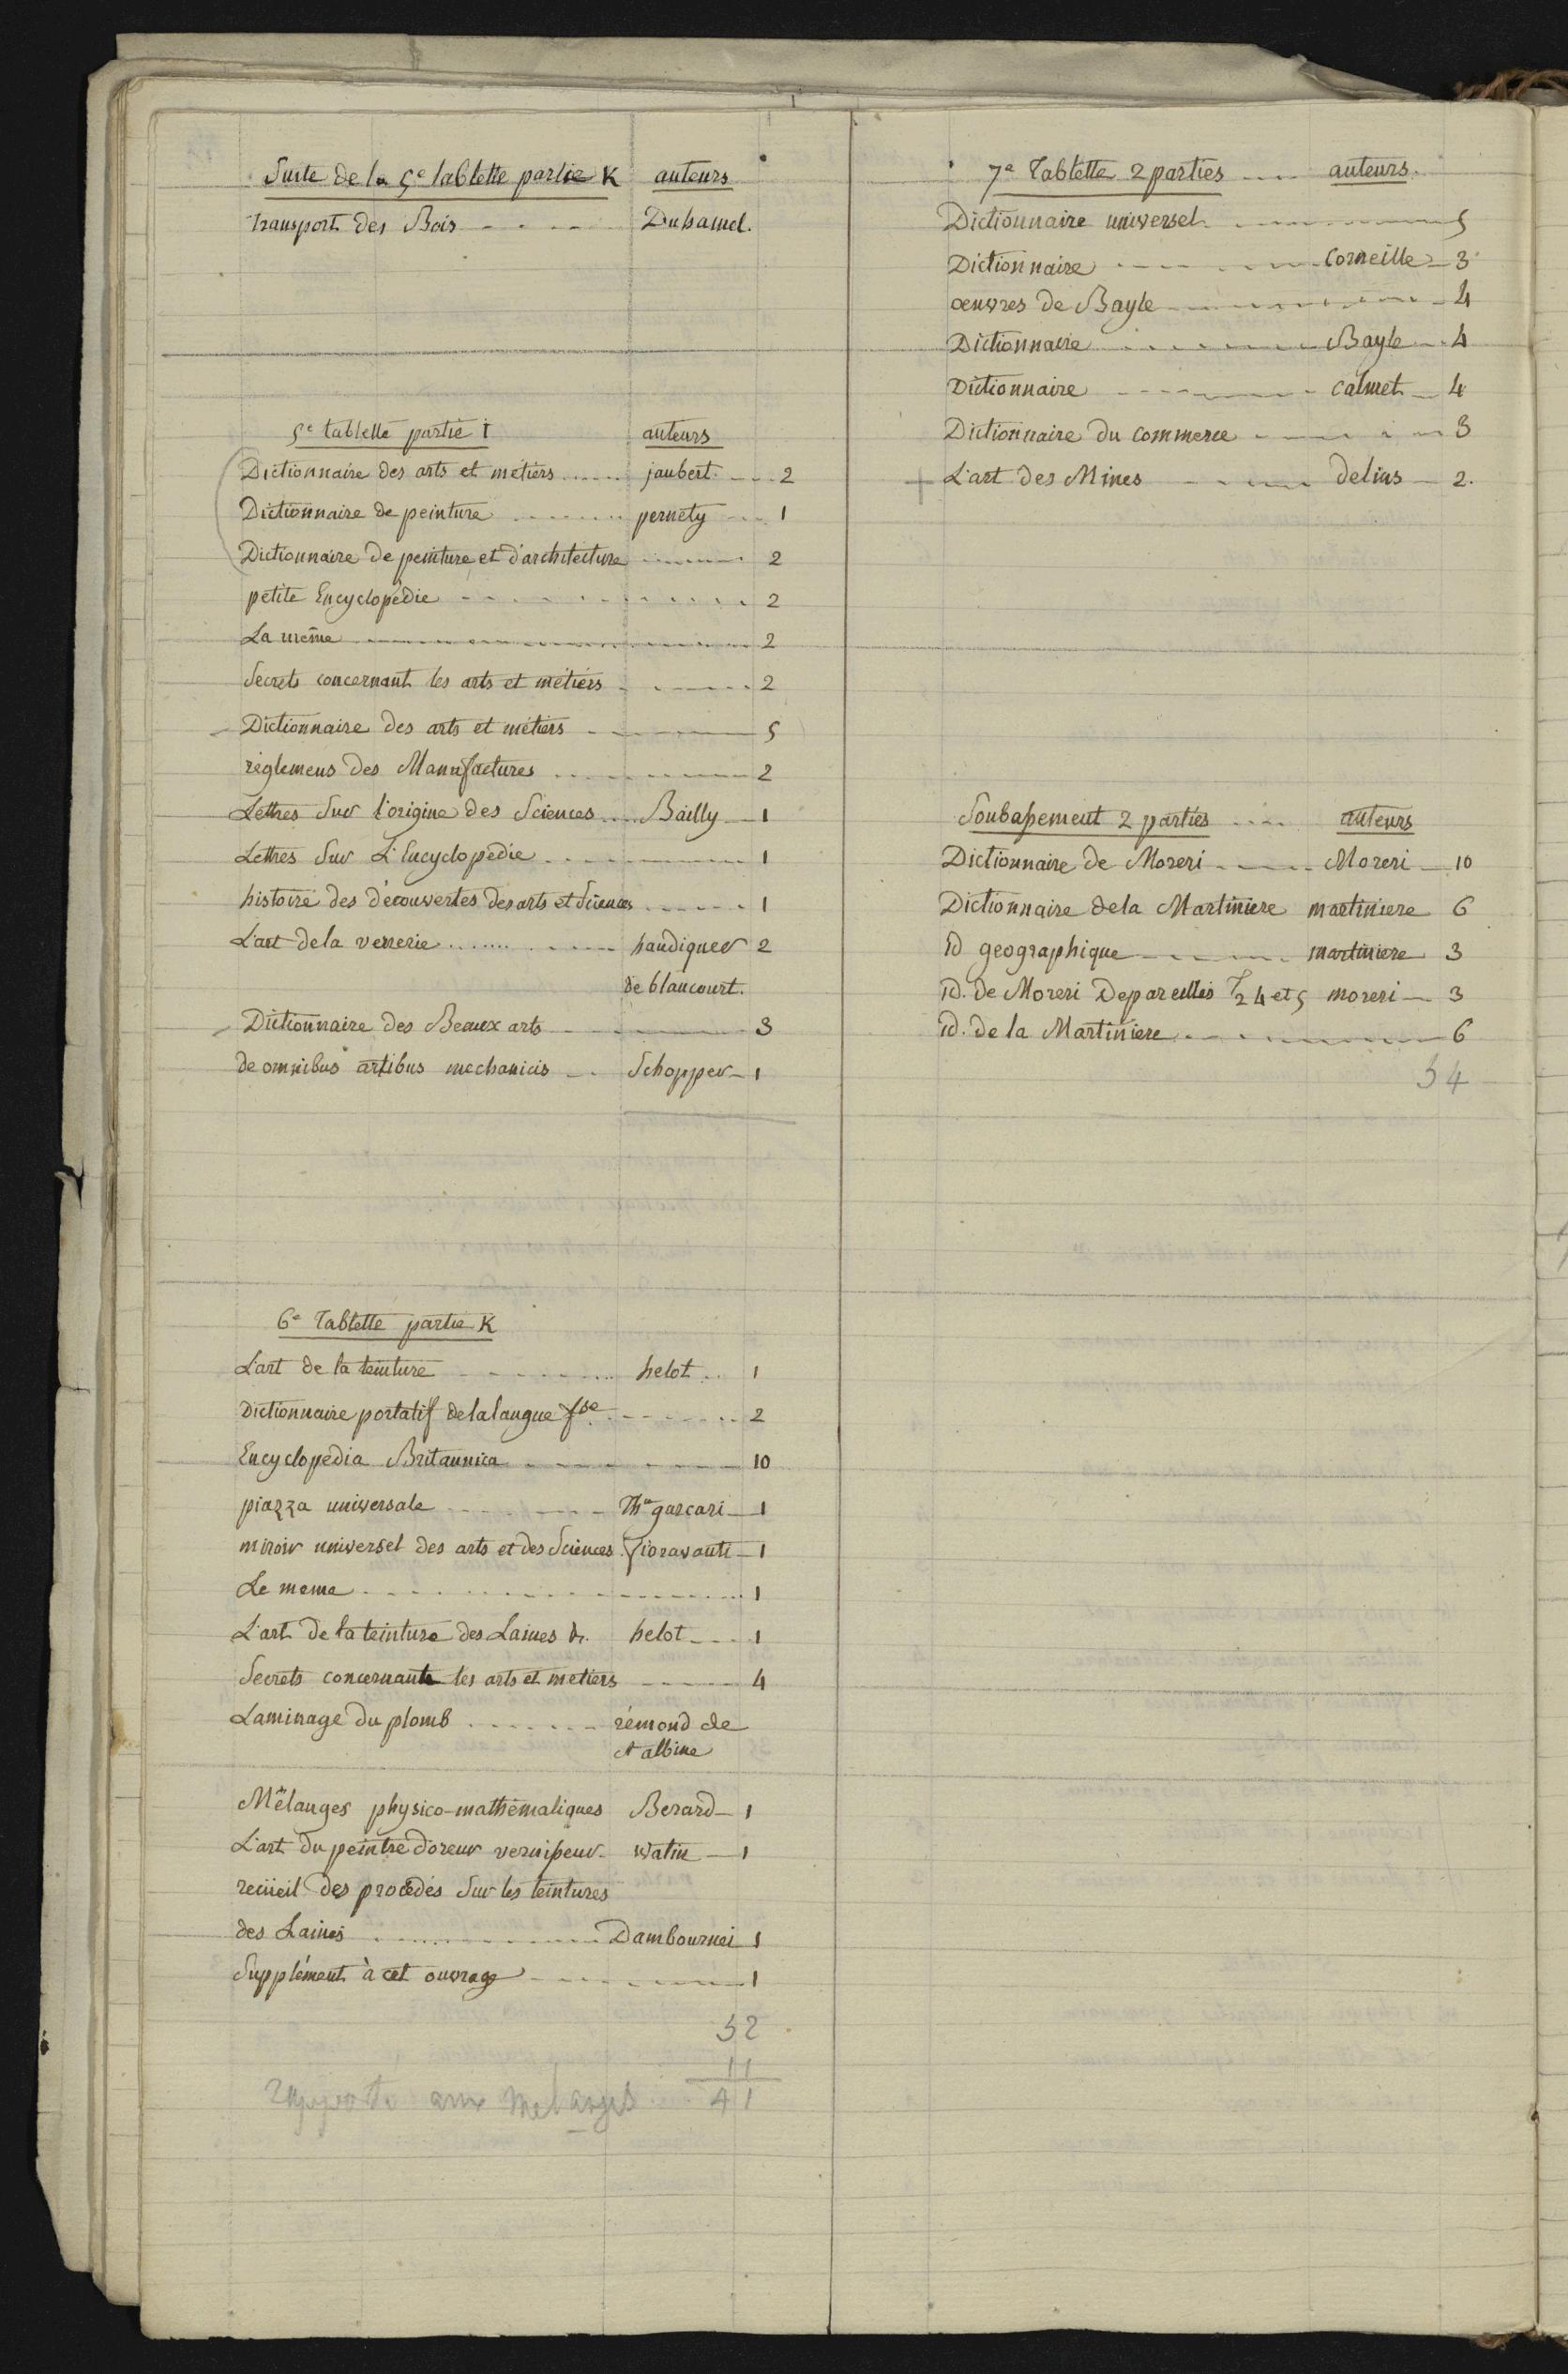 Suite de la 5e tablette partie K auteurs
transport des Bois Duhamel.
5e tablette partie I auteurs
Dictionnaire des arts et métiers jaubert 2
Dictionnaire de peinture pernety 1
Dictionnaire de peinture et d'architecture 2
petite Encyclopédie 2
La même 2
Secrets concernant les arts et métiers 2
Dictionnaire des arts et métiers 5
règlemens des Manufactures 2
Lettres sur l'origine des Sciences Bailly 1
Lettres sur L'Encyclopedie 1
histoire des découvertes des arts et Sciences 1
L'art de la verrerie haudiquer 2
de blancourt.
Dictionnaire des Beaux arts 3
de omnibus artibus mechanicis Schopper 1
6e Tablette partie K
L'art de la teinture helot 1
Dictionnaire portatif de la langue fse 2
Encyclopedia Britannica 10
piazza universale Tho garcari 1
miroir universel des arts et des Sciences fioravanti 1
Le meme 1
L'art de la teinture des Laines &c. helot 1
Secrets concernants les arts et metiers 4
Laminage du plomb rémond de
St albine
Mélanges physico-mathématiques Berard 1
L'art du peintre doreur vernisseur watin 1
recüeil des procédés sur les teintures
des Laines Dambournei 1
Supplément à cet ouvrage 1
52
11
41
rapporté aux melanges
7e Tablette 2 parties auteurs.
Dictionnaire universel 5
Dictionnaire Corneille 3
œuvres de Bayle 4
Dictionnaire Bayle 4
Dictionnaire calmet 4
Dictionnaire du commerce 3
+ L'art des Mines delius 2.
Soubassement 2 parties auteurs
Dictionnaire de Moreri Moreri 10
Dictionnaire de la Martiniere martiniere 6
id geographique martiniere 3
id. de Moreri Depareillés T 2 4 et 5 moreri 3
id. de la Martiniere 6
54